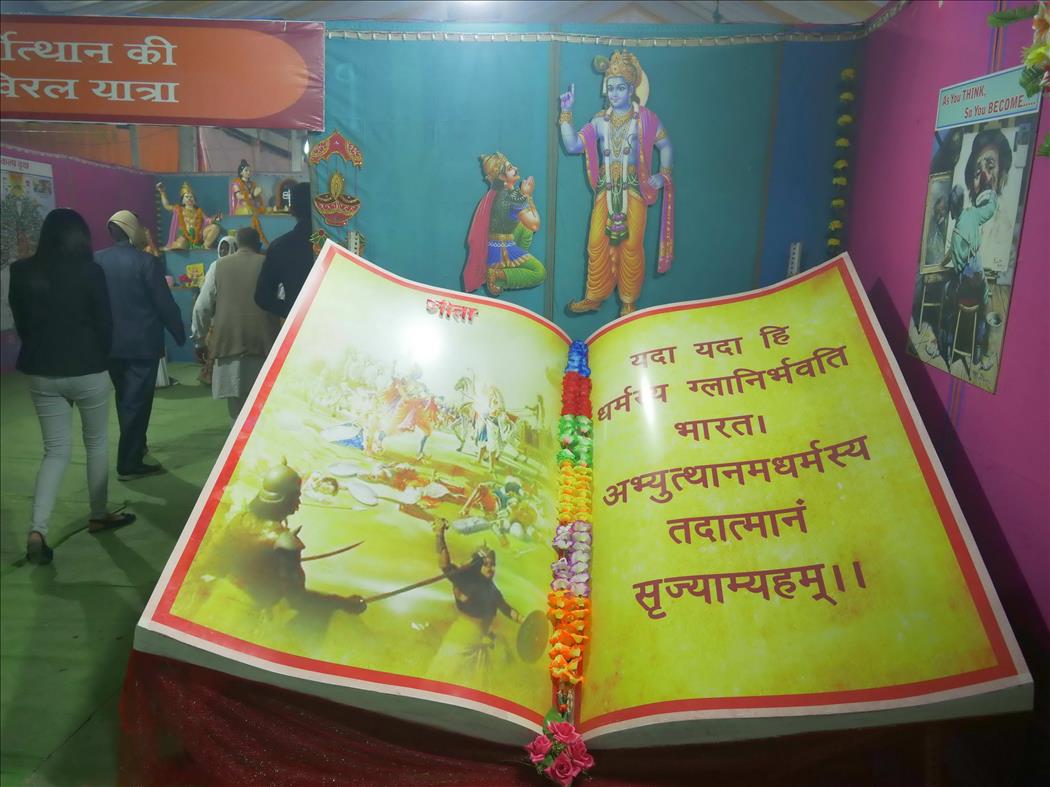 र्मात्थान की
विरल यात्रा
As You THINK,
So You BECOME.....
गीता
यदा यदा हि
धर्मस्य ग्लानिर्भवति
भारत।
अभ्युत्थानमधर्मस्य
तदात्मानं
सृज्याम्यहम्।।